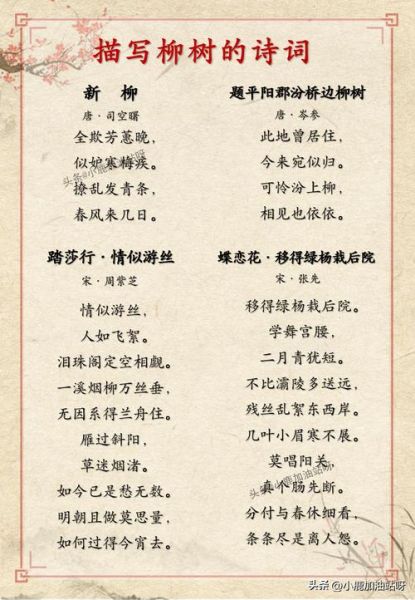 描写柳树的诗词
新 柳
唐·司空曙
全欺芳蕙晚，
似妒寒梅疾。
撩乱发青条，
春风来几日。
题平阳郡汾桥边柳树
唐·岑参
此地曾居住，
今来宛似归。
可怜汾上柳，
相见也依依。
踏莎行·情似游丝
宋·周紫芝
情似游丝，
人如飞絮。
泪珠阁定空相觑。
一溪烟柳万丝垂，
无因系得兰舟住。
雁过斜阳，
草迷烟渚。
如今已是愁无数。
明朝且做莫思量，
如何过得今宵去。
蝶恋花·移得绿杨栽后院
宋·张先
移得绿杨栽后院。
学舞宫腰，
二月青犹短。
不比灞陵多送远，
残丝乱絮东西岸。
几叶小眉寒不展。
莫唱阳关，
真个肠先断。
分付与春休细看，
条条尽是离人怨。
头条@小鹿加油站呀
头条@小鹿加油站呀
头条@小鹿加油站呀